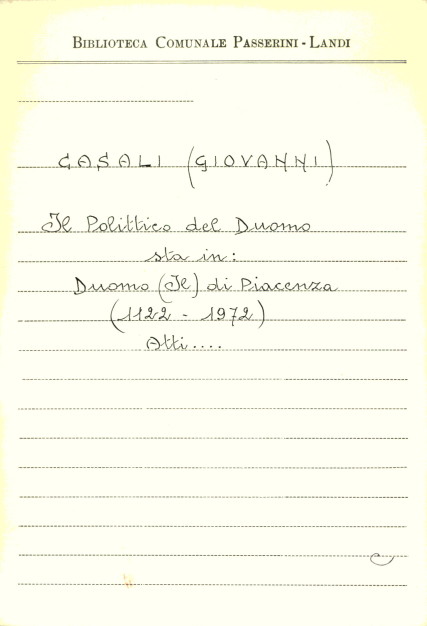 BIBLIOTECA COMUNALE PASSERINI - LANDI
CASALI (GIOVANNI)
Il Polittico del Duomo
sta in:
Duomo (Il) di Piacenza
(1122 - 1972)
Atti....